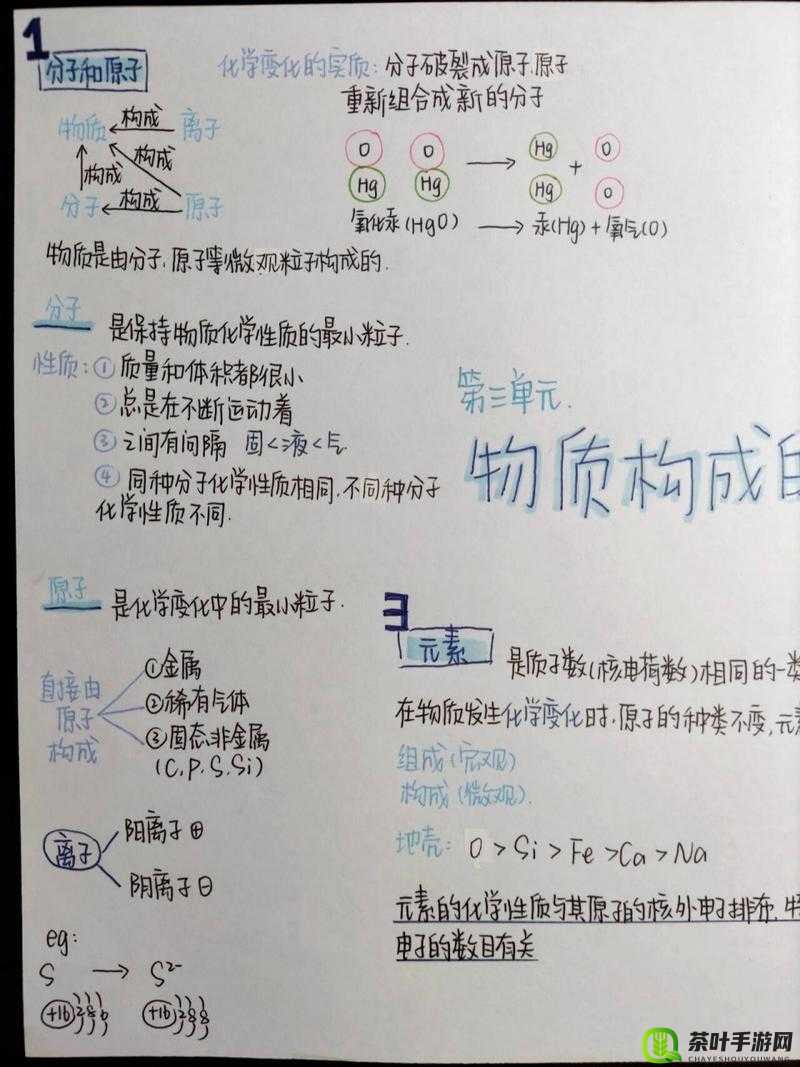 1
分子和原子
化学变化的实质：分子破裂成原子.原子
重新组合成新的分子
物质 构成 离子
构成
构成
分子 构成 原子
O O → Hg + O
Hg Hg Hg O
氧化汞(HgO) → 汞(Hg)+氧气(O)
物质是由分子.原子等微观粒子构成的.
分子 是保持物质化学性质的最小粒子.
性质：① 质量和体积都很小
② 总是在不断运动着
③ 之间有间隔 固<液<气
④ 同种分子化学性质相同,不同种分子
化学性质不同.
第三单元.
物质构成的
原子 是化学变化中的最小粒子.
直接由
原子
构成
①金属
②稀有气体
③固态非金属
(C.P.S.Si)
离子
阳离子 ⊕
阴离子 ⊖
eg:
S → S2-
+16 2 8 6 +16 2 8 8
3
元素 是质子数(核电荷数)相同的一类
在物质发生化学变化时.原子的种类不变,元素
组成(宏观)
构成(微观).
地壳: O > Si > Fe > Ca > Na
元素的化学性质与其原子的核外电子排布.
电子的数目有关
茶叶手游网
CHAYESHOUYOUWANG